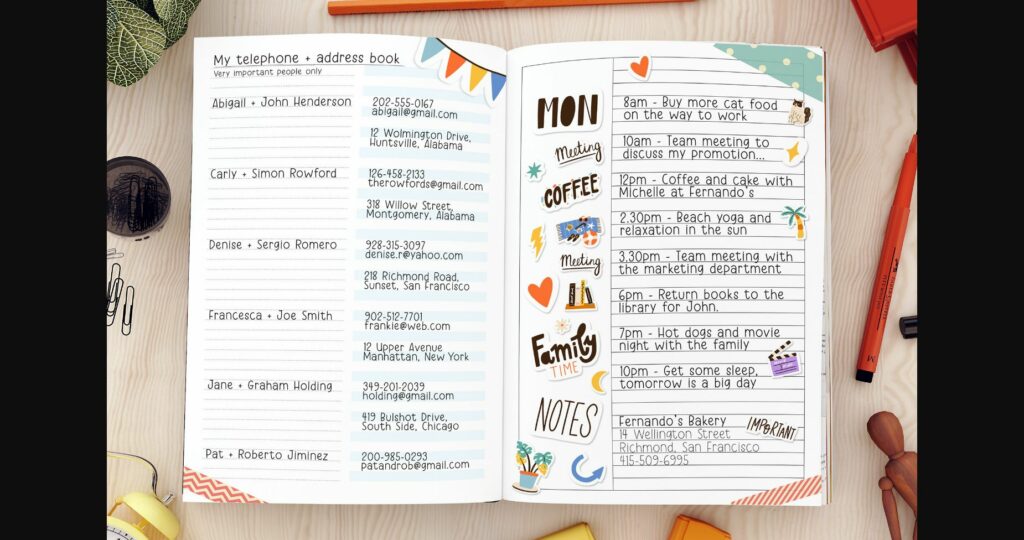 My telephone + address book
Very important people only
Abigail + John Henderson
202-555-0167
abigail@gmail.com
12 Wolmington Drive,
Huntsville, Alabama
Carly + Simon Rowford
126-458-2133
therowfords@gmail.com
318 Willow Street,
Montgomery, Alabama
Denise + Sergio Romero
928-315-3097
denise.r@yahoo.com
218 Richmond Road,
Sunset, San Francisco
Francesca + Joe Smith
902-512-7701
frankie@web.com
12 Upper Avenue
Manhattan, New York
Jane + Graham Holding
349-201-2039
holding@gmail.com
419 Bulshot Drive,
South Side, Chicago
Pat + Roberto Jiminez
200-985-0293
patandrob@gmail.com
MON
8am - Buy more cat food
on the way to work
Meeting
10am - Team meeting to
discuss my promotion...
COFFEE
12pm - Coffee and cake with
Michelle at Fernando's
2.30pm - Beach yoga and
relaxation in the sun
Meeting
3.30pm - Team meeting with
the marketing department
6pm - Return books to the
library for John.
Family
TIME
7pm - Hot dogs and movie
night with the family
10pm - Get some sleep,
tomorrow is a big day
NOTES
Fernando's Bakery
14 Wellington Street
Richmond, San Francisco
415-509-6995
IMPORTANT
M